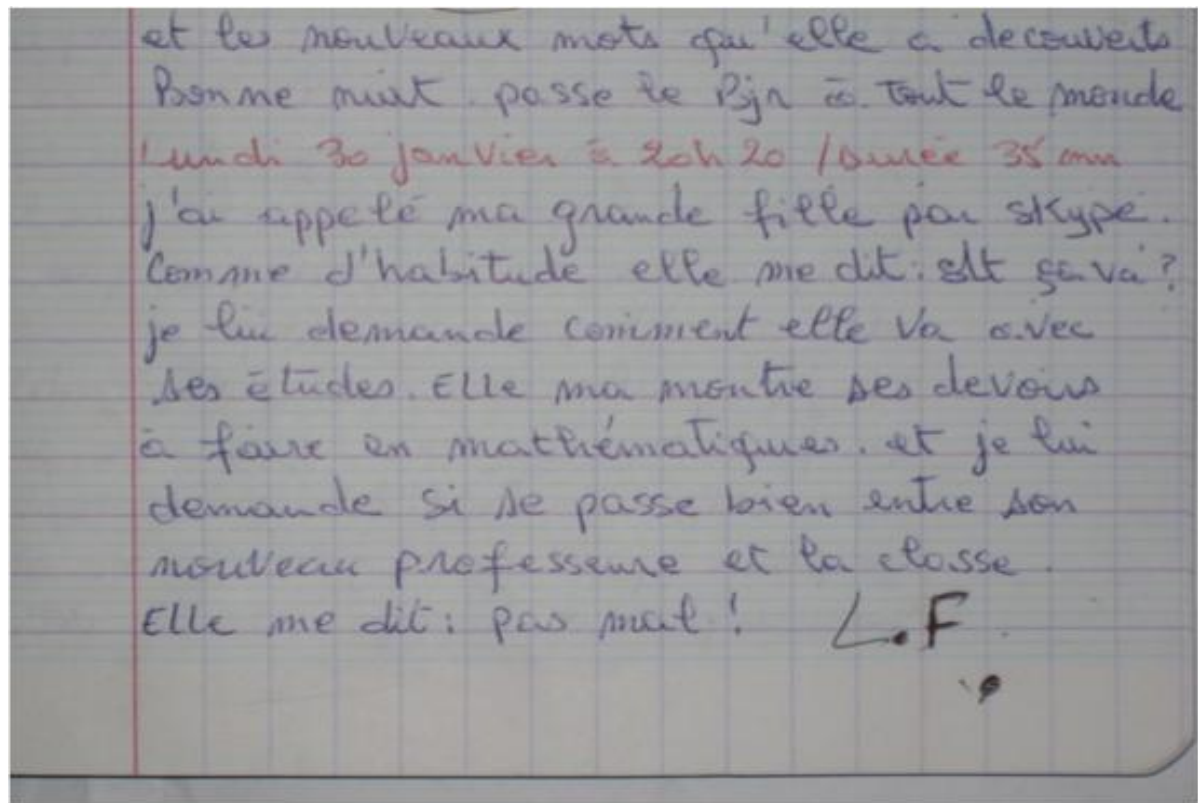 et les nouveaux mots qu'elle a decouverts
Bonne nuit. passe le Bjr à. Tout le monde
Lundi 30 janvier à 20h 20 / durée 35 mn
j'ai appelé ma grande fille par skype.
Comme d'habitude elle me dit : slt ça va ?
je lui demande comment elle va avec
ses études. Elle ma montre ses devoirs
à faire en mathématiques. et je lui
demande si se passe bien entre son
nouveau professeure et la classe.
Elle me dit : pas mal !
L.F.